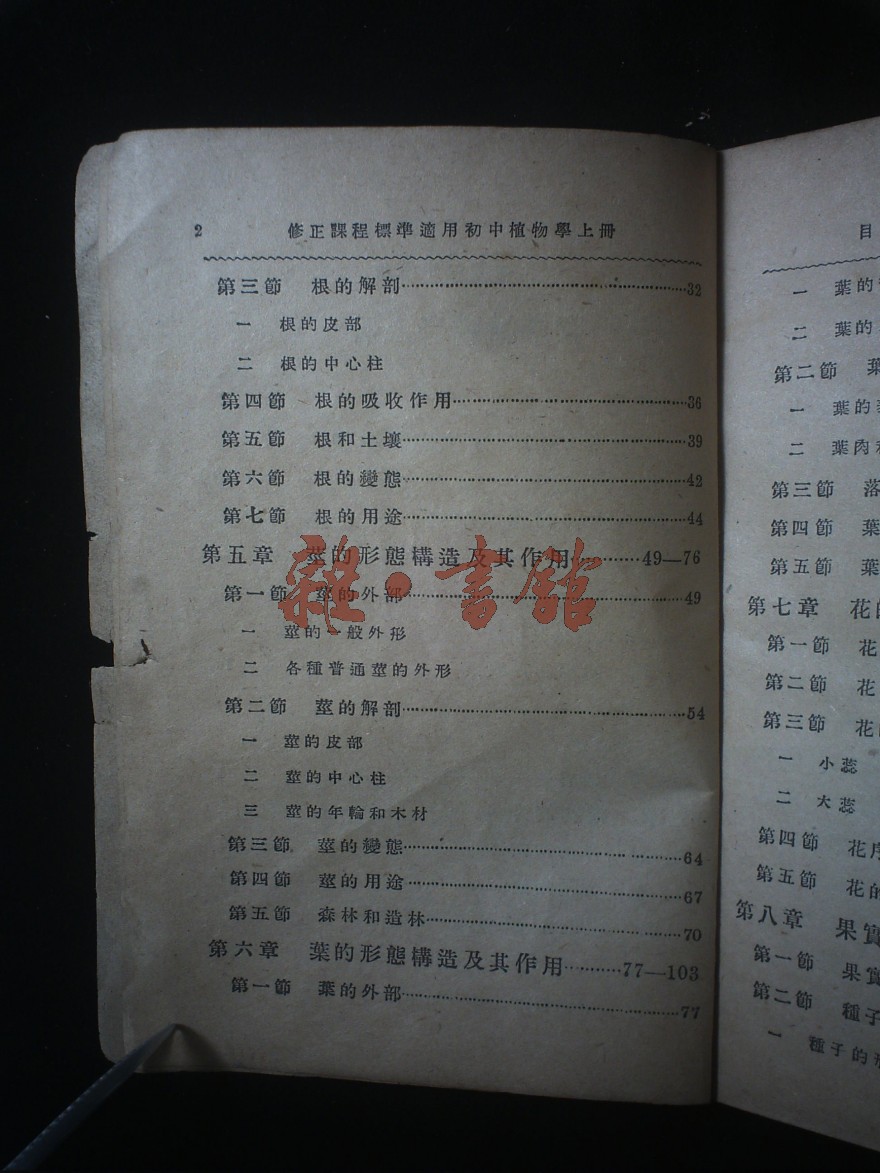 2 修正課程標準適用初中植物學上冊
第三節 根的解剖……32
一 根的皮部
二 根的中心柱
第四節 根的吸收作用……36
第五節 根和土壤……39
第六節 根的變態……42
第七節 根的用途……44
第五章 莖的形態構造及其作用……49—76
第一節 莖的外部……49
一 莖的一般外形
二 各種普通莖的外形
第二節 莖的解剖……54
一 莖的皮部
二 莖的中心柱
三 莖的年輪和木材
第三節 莖的變態……64
第四節 莖的用途……67
第五節 森林和造林……70
第六章 葉的形態構造及其作用……77—103
第一節 葉的外部……77
雜·書館
目
一 葉的
二 葉的
第二節 葉
一 葉的
二 葉肉
第三節 落
第四節 葉
第五節 葉
第七章 花的
第一節 花
第二節 花
第三節 花的
一 小蕊
二 大蕊
第四節 花序
第五節 花的
第八章 果實
第一節 果實
第二節 種子
一 種子的形